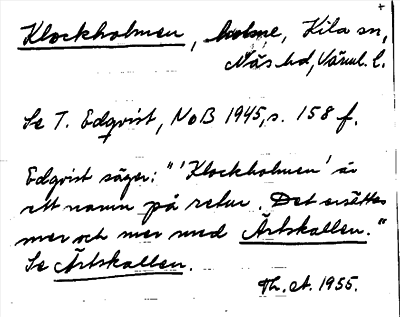 +
Klockholmen, holme, Kila sn,
Näs hd, Värml. l.
Se T. Edqvist, NoB 1945, s. 158 f.
Edqvist säger: "'Klockholmen' är
ett namn på retur. Det ersättes
mer och mer med Ärtskallen."
Se Ärtskallen.
Th. at. 1955.